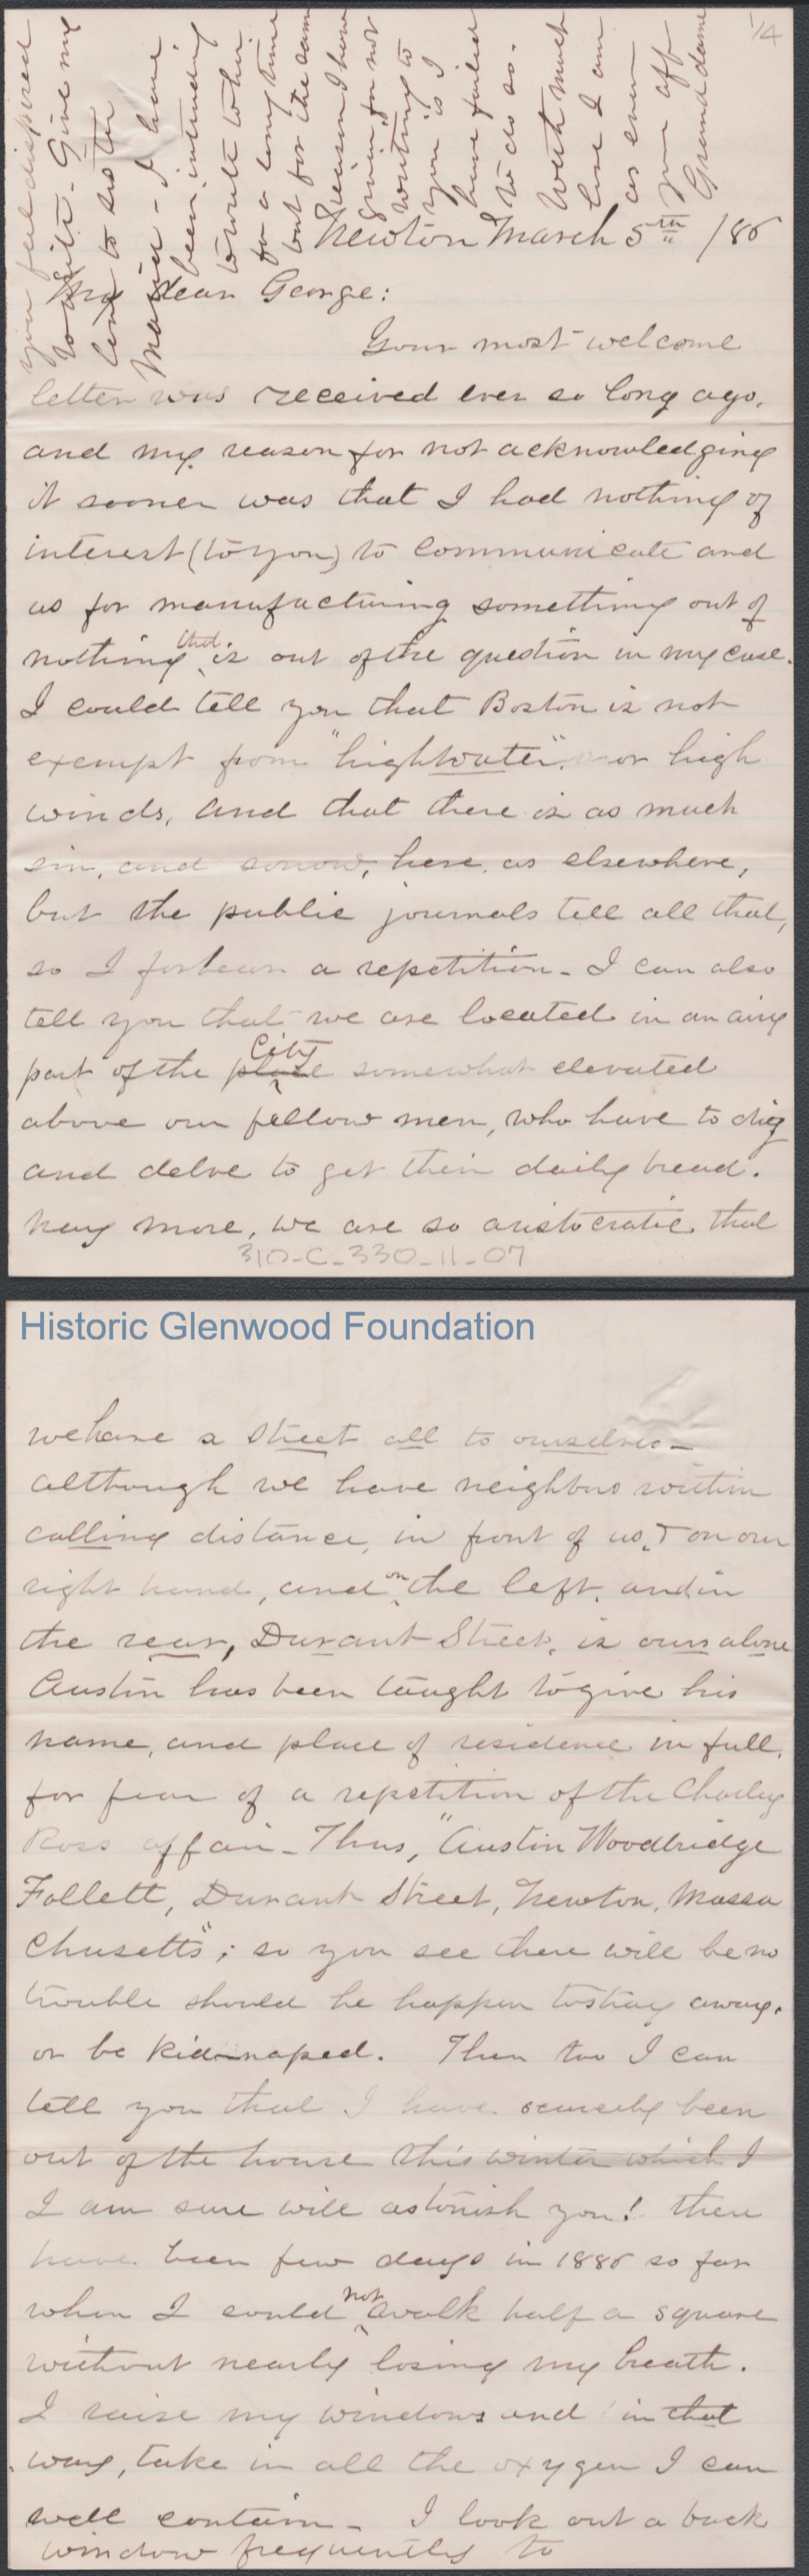 1/4
you feel disposed
to gilt. Give my
love to sister
Maria - I have
been intending
to write to her
for a long time
but for the same
reason I have
given for not
writing to
you is I
have failed
to do so.
With much
love I am
as ever
your aff
Grand dame
Newton March 5th /86
My dear George:
Your most welcome
letter was received ever so long ago,
and my reason for not acknowledging
it sooner was that I had nothing of
interest (to you) to communicate and
as for manufacturing something out of
nothing that is out of the question in my case.
I could tell you that Boston is not
exempt from "highwater". nor high
winds, and that there is as much
sin, and sorrow, here, as elsewhere,
but the public journals tell all that,
so I forbear a repetition - I can also
tell you that we are located in an airy
part of the place City somewhat elevated
above our fellow men, who have to dig
and delve to get their daily bread.
Nay more, we are so aristocratic that
310-C-330-11-07
Historic Glenwood Foundation
we have a street all to ourselves -
although we have neighbors within
calling distance, in front of us, & on our
right hand, and on the left, and in
the rear, Durant Street, is ours alone
Austin has been taught to give his
name, and place of residence in full,
for fear of a repetition of the Charley
Ross affair - Thus, "Austin Woodbridge
Follett, Durant Street, Newton, Massa
chusetts"; so you see there will be no
trouble should he happen to stray away,
or be kidnaped. Then too I can
tell you that I have scarcely been
out of the house this winter which I
I am sure will astonish you! there
have been few days in 1886 so far
when I could not walk half a square
without nearly losing my breath.
I raise my windows and in that
way, take in all the oxygen I can
well contain - I look out a back
window frequently to